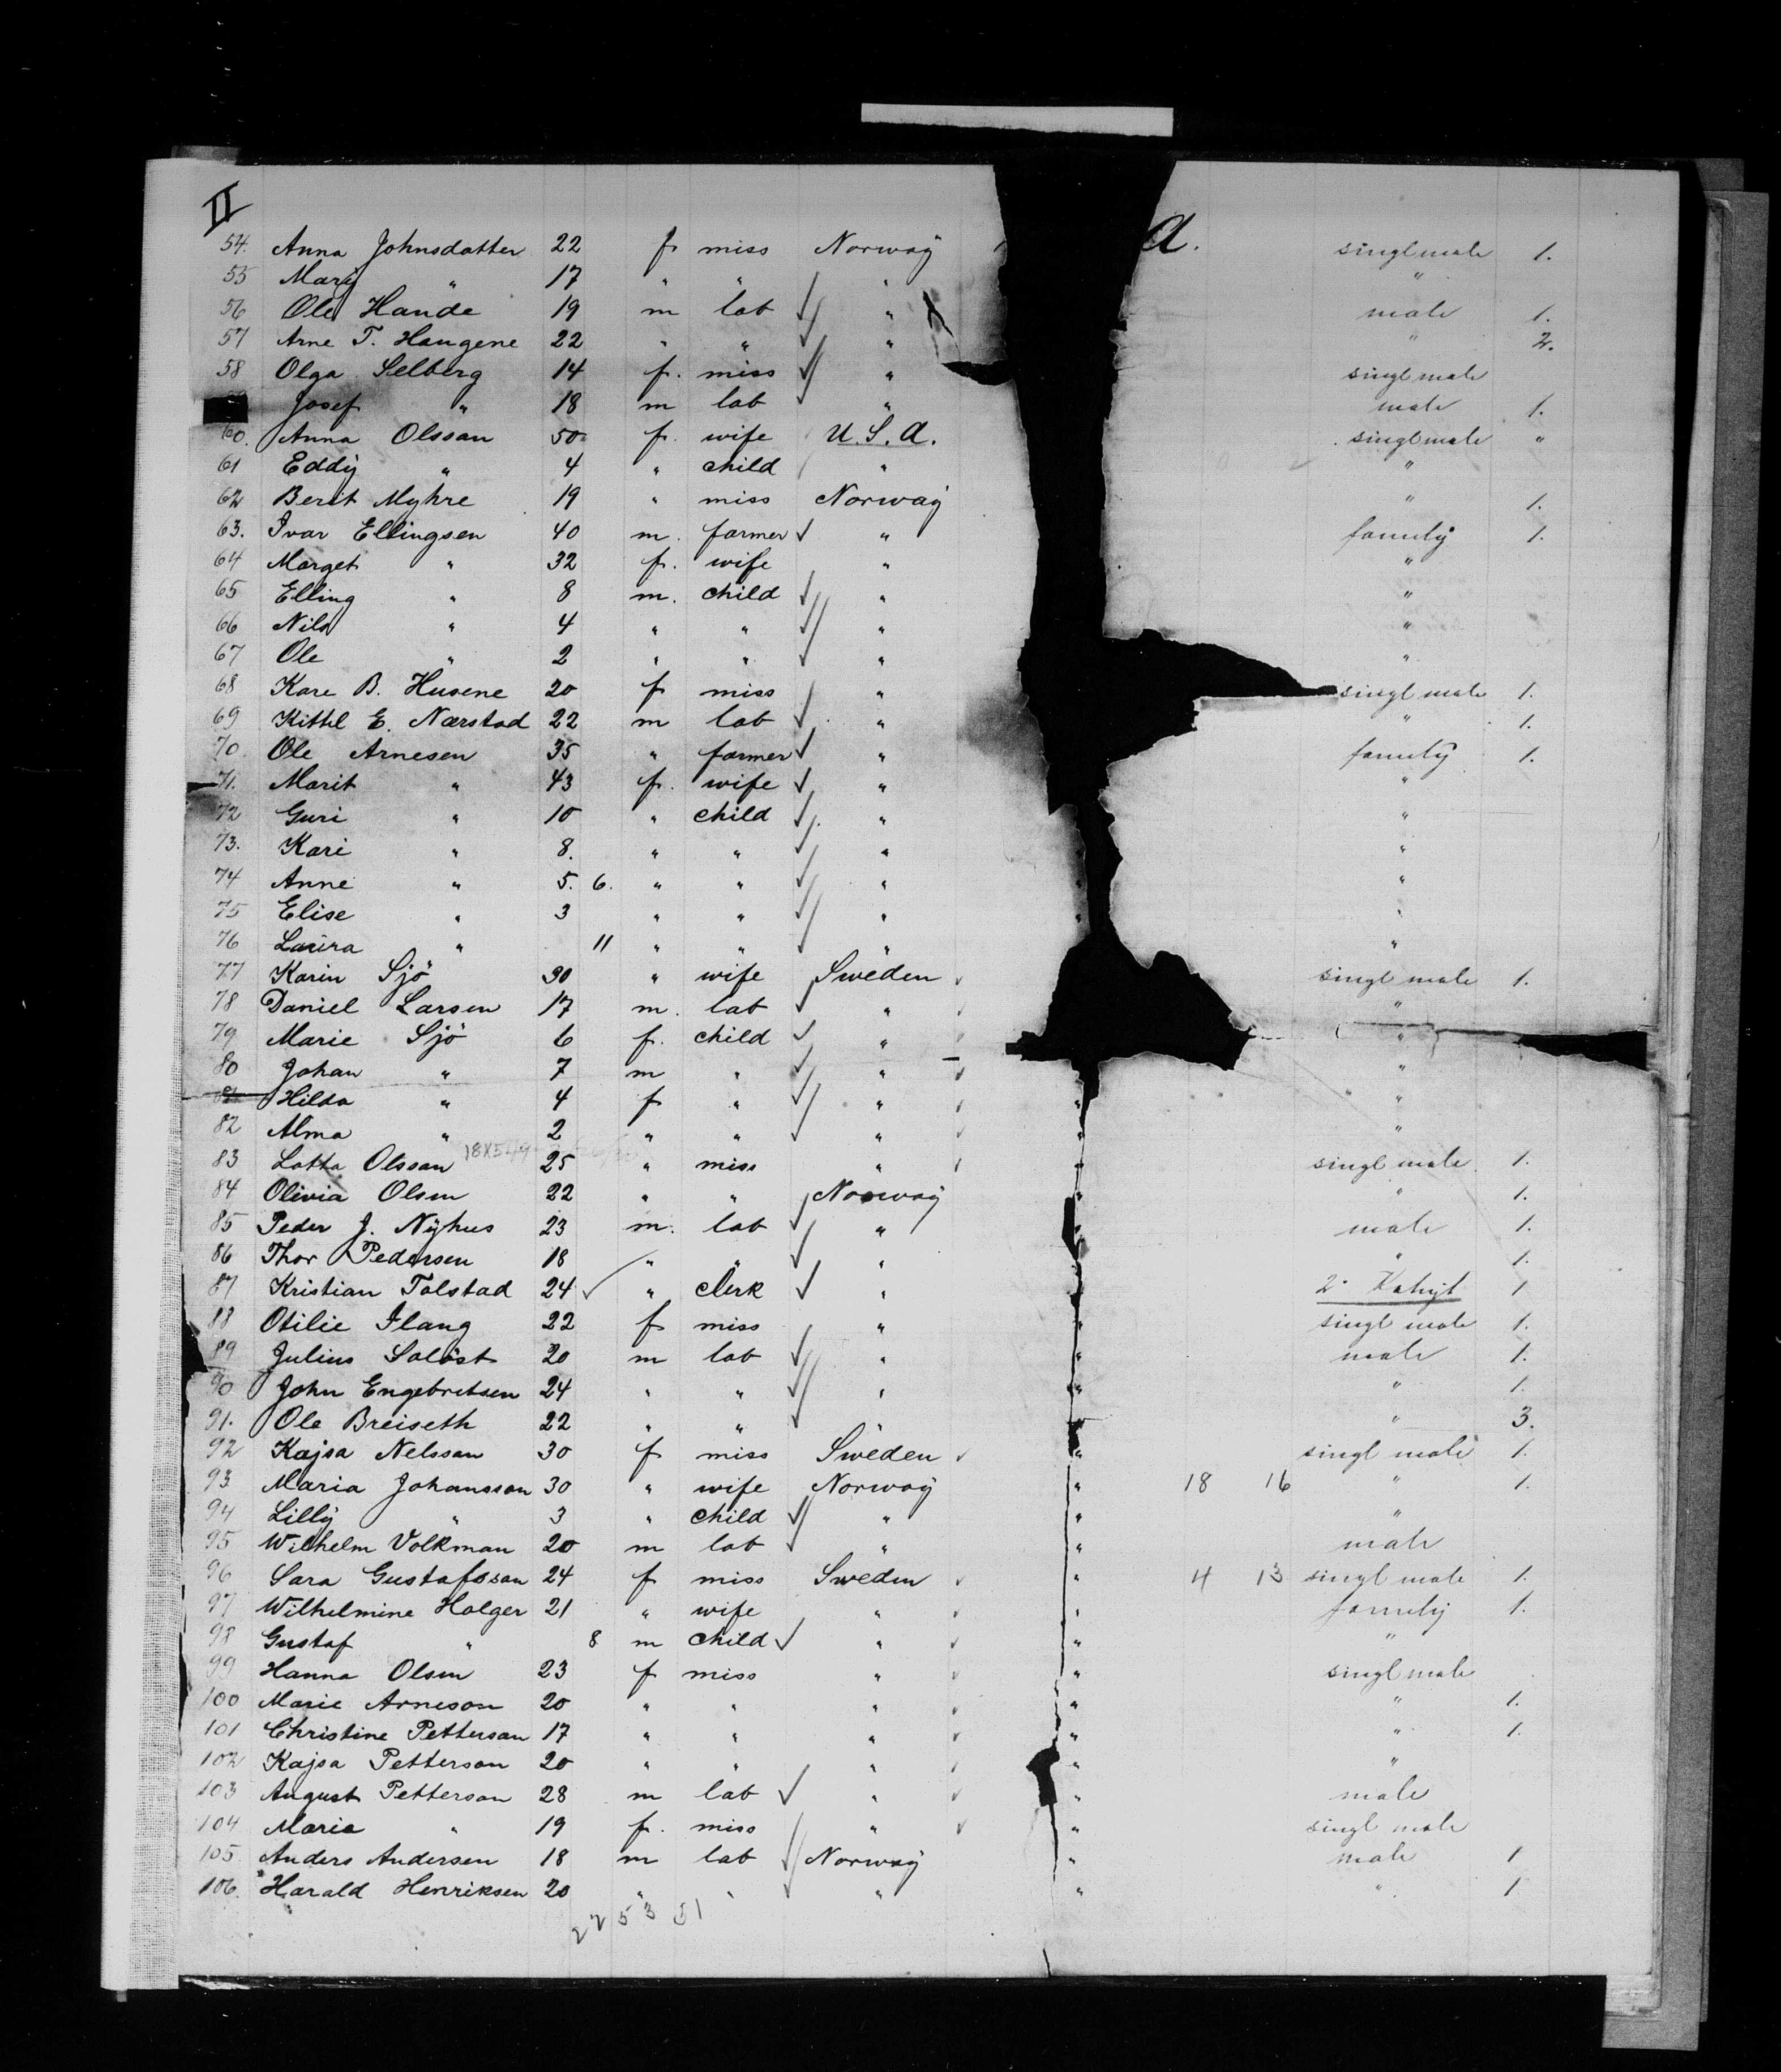 II
54. Anna Johnsdatter 22 f miss Norway a. singl male 1.
55 Mary " 17 " " " "
56 Ole Hande 19 m lab " male 1.
57 Arne T. Haugene 22 " " " " 2.
58 Olga Selberg 14 f. miss " singl male
Josef " 18 m lab " male 1.
60. Anna Olsson 50 f. wife U.S.A. singl male "
61 Eddy " 4 " child " "
62 Berit Myhre 19 " miss Norway " 1.
63. Ivar Ellingsen 40 m. farmer " family 1.
64 Marget " 32 f. wife " "
65 Elling " 8 m. child " "
66 Nils " 4 " " " "
67 Ole " 2 " " " "
68 Kare B. Husene 20 f miss " singl male 1.
69 Kittil E. Narstad 22 m lab " " 1.
70. Ole Arnesen 35 " farmer " family 1.
71. Marit " 43 f. wife " "
72 Guri " 10 " child " "
73. Kari " 8. " " " "
74 Anne " 5. 6. " " " "
75 Elise " 3 " " " "
76 Laura " 11 " " " "
77 Karin Sjö 30 " wife Sweden singl male 1.
78 Daniel Larsen 17 m. lab " "
79 Marie Sjö 6 f. child " "
80 Johan " 7 m " " "
81 Hilda " 4 f " " " "
82 Alma " 2 " " " " "
83 Lotta Olsson 18X549 25 " miss " " singl male 1.
84 Olivia Olsen 22 " " Norway " " 1.
85 Peder J. Nyhus 23 m. lab " " male 1.
86 Thor Pedersen 18 " " " " 1.
87 Kristian Tolstad 24 " clerk " " 2. 1
88 Otilie Ilang 22 f miss " " singl male 1.
89 Julius Soløst 20 m lab " " male 1.
90 John Engebretsen 24 " " " " " 1.
91. Ole Breiseth 22 " " " " " 3.
92 Kajsa Nelsson 30 f miss Sweden " singl male 1.
93 Maria Johansson 30 " wife Norway " 18 16 " 1.
94 Lilly " 3 " child " " "
95 Wilhelm Volkman 20 m lab " " male
96 Sara Gustafsson 24 f miss Sweden " 4 13 singl male 1.
97 Wilhelmine Holger 21 " wife " " family 1.
98 Gustaf " 8 m child " " "
99 Hanna Olsen 23 f miss " " singl male
100 Marie Arneson 20 " " " " " 1.
101 Christine Petterson 17 " " " " " 1.
102 Kajsa Petterson 20 " " " " "
103 August Petterson 28 m lab " " male
104 Maria " 19 f. miss " " singl male
105. Anders Andersen 18 m lab Norway " male 1
106. Harald Henriksen 20 " " " " " 1
22 53 51